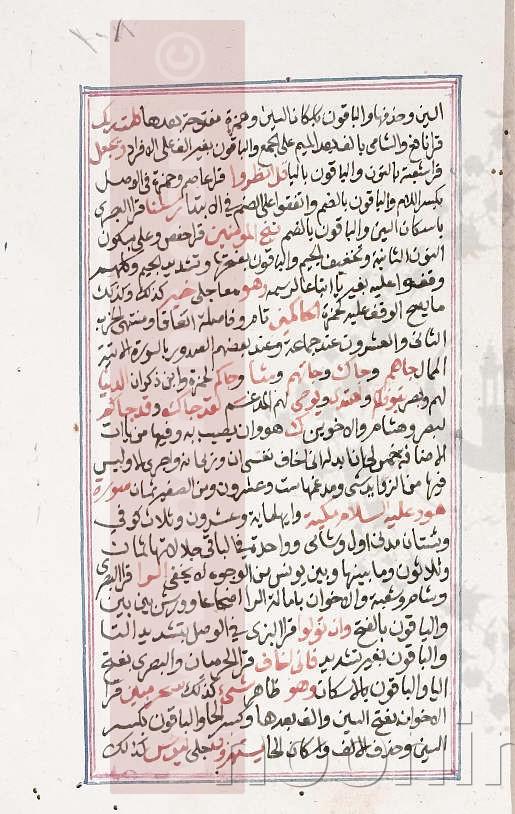 السين وحذفها والباقون باسكان السين وهمزة مفتوحة بعدها كلمت ربك
قرأ نافع والشامي بالف بعد الميم على الجمع والباقون بغير الف على الافراد ويجعل
قرأ شعبة بالنون والباقون بالياء قل انظروا قرأ عاصم وحمزة في الوصل
بكسر اللام والباقون بالضم واتفقوا على الضم في الابتدا رسلنا قرأ البصري
باسكان السين والباقون بالضم ننج المؤمنين قرأ حفص وعلي بسكون
النون الثانية وتخفيف الجيم والباقون بفتحها وتشديد الجيم وكلهم
وقفوا عليه بغير يا اتباعا للرسم وهو معا جلي خير كذلك وكذلك
ما يصح الوقف عليه لحمزة الحاكمين تام وفاصلة اتفاقا ومنتهى الحزب
الثاني والعشرون عند جماعة وعند بعضهم الصدور بالسورة الاتية
الممال جاءهم وجاءك وجاءتهم وشا وجاكم لحمزة وابن ذكوان الدنيا
لهم وبصر يتوفاكم واهتدى ويوحى لهم المدغم لقد جاءك وقد جاءكم
لبصر وهشام والاخوين ك هو وان يصيب به وفيها من ياآت
الاضافة خمس لي ان ابدله اني اخاف نفسي ان وربي انه واجري الا وليس
فيها من الزوايد شي ومدغمها ست وعشرون ومن الصغير ثمان سورة
هود عليه السلام مكية وايها مائة وعشرون وثلاث كوفي
وثنتان مدني اول وشامي وواحدة في الباقي جلالاتها ثمان
وثلاثون وما بينها وبين يونس من الوجوه لا يخفى الر قرأ البصري
وشام وشعبة والاخوان بامالة الرا اضجاعا وورش بين بين
والباقون بالفتح وان تولوا قرأ البزي في الوصل بتشديد التا
والباقون بغير تشديد فاني اخاف قرأ الحرميان والبصري بفتح
اليا والباقون بالاسكان وهو ظاهر شيء كذلك سحر مبين قرأ
الاخوان بفتح السين والف بعدها وكسر الحا والباقون بكسر
السين وحذف الالف واسكان الحا يستهزؤن جلي ليؤس كذلك